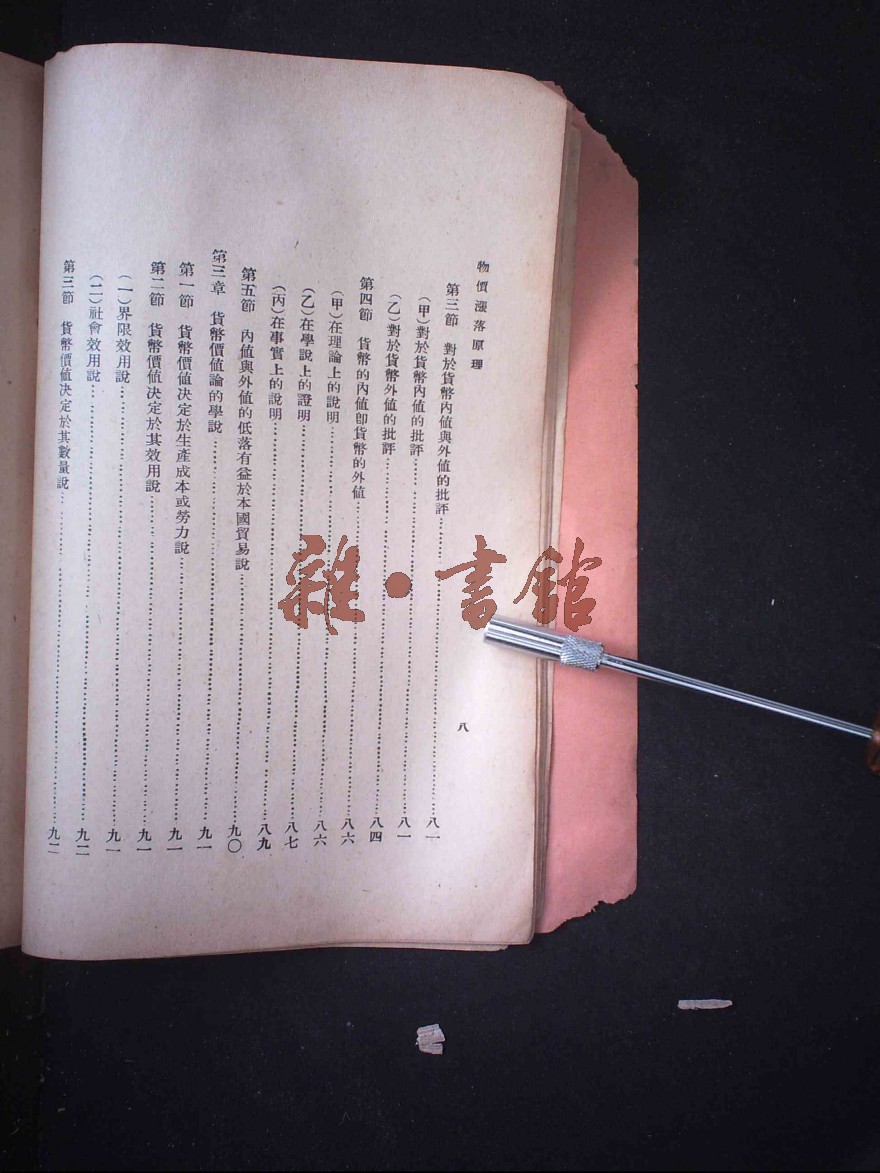 物價漲落原理
八
第三節　對於貨幣內值與外值的批評……八一
（甲）對於貨幣內值的批評……八一
（乙）對於貨幣外值的批評……八四
第四節　貨幣的內值卽貨幣的外值……八六
（甲）在理論上的說明……八六
（乙）在學說上的證明……八七
（丙）在事實上的說明……八九
第五節　內值與外值的低落有益於本國貿易說……九〇
第三章　貨幣價值論的學說……九一
第一節　貨幣價值决定於生產成本或勞力說……九一
第二節　貨幣價值决定於其效用說……九一
（一）界限效用說……九一
（二）社會效用說……九二
第三節　貨幣價值决定於其數量說……九二
雜·書館